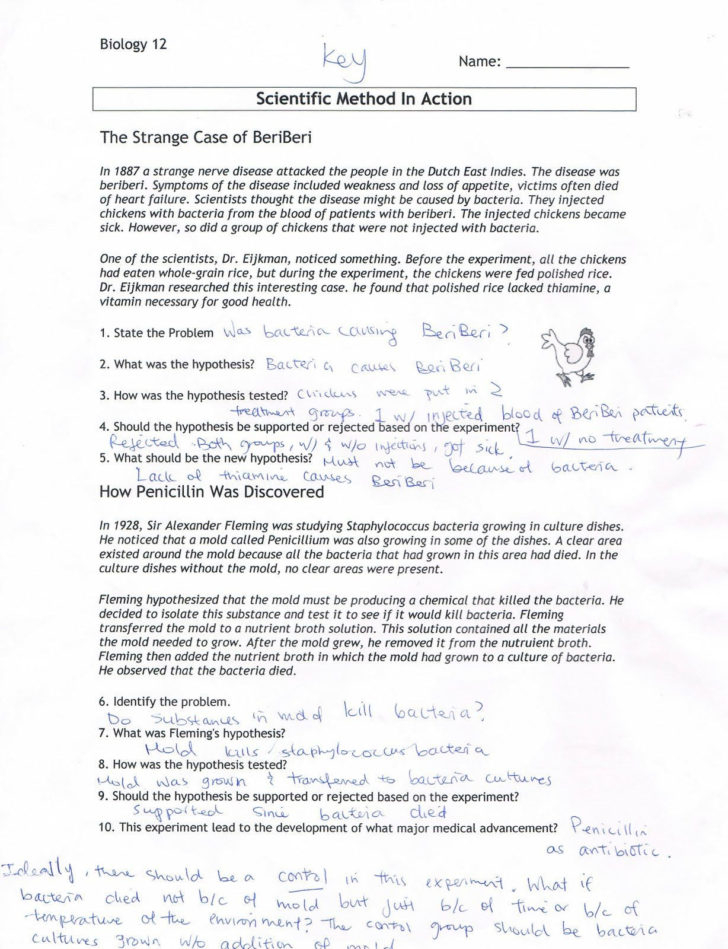 Biology 12
Key
Name:
Scientific Method In Action
The Strange Case of BeriBeri
In 1887 a strange nerve disease attacked the people in the Dutch East Indies. The disease was
beriberi. Symptoms of the disease included weakness and loss of appetite, victims often died
of heart failure. Scientists thought the disease might be caused by bacteria. They injected
chickens with bacteria from the blood of patients with beriberi. The injected chickens became
sick. However, so did a group of chickens that were not injected with bacteria.
One of the scientists, Dr. Eijkman, noticed something. Before the experiment, all the chickens
had eaten whole-grain rice, but during the experiment, the chickens were fed polished rice.
Dr. Eijkman researched this interesting case. he found that polished rice lacked thiamine, a
vitamin necessary for good health.
1. State the Problem Was bacteria causing BeriBeri?
2. What was the hypothesis? Bacteria causes BeriBeri
3. How was the hypothesis tested? Chickens were put in 2
treatment groups. 1 w/ injected blood of BeriBeri patients.
4. Should the hypothesis be supported or rejected based on the experiment? 1 w/ no treatment
Rejected. Both groups, w/ & w/o injections, got sick.
5. What should be the new hypothesis? Must not be because of bacteria.
Lack of thiamine causes BeriBeri
How Penicillin Was Discovered
In 1928, Sir Alexander Fleming was studying Staphylococcus bacteria growing in culture dishes.
He noticed that a mold called Penicillium was also growing in some of the dishes. A clear area
existed around the mold because all the bacteria that had grown in this area had died. In the
culture dishes without the mold, no clear areas were present.
Fleming hypothesized that the mold must be producing a chemical that killed the bacteria. He
decided to isolate this substance and test it to see if it would kill bacteria. Fleming
transferred the mold to a nutrient broth solution. This solution contained all the materials
the mold needed to grow. After the mold grew, he removed it from the nutruient broth.
Fleming then added the nutrient broth in which the mold had grown to a culture of bacteria.
He observed that the bacteria died.
6. Identify the problem.
Do substances in mold kill bacteria?
7. What was Fleming's hypothesis?
Mold kills staphylococcus bacteria
8. How was the hypothesis tested?
Mold was grown & transferred to bacteria cultures
9. Should the hypothesis be supported or rejected based on the experiment?
Supported since bacteria died
10. This experiment lead to the development of what major medical advancement? Penicillin
as antibiotic.
Ideally, there should be a control in this experiment. What if
bacteria died not b/c of mold but just b/c of time or b/c of
temperature of the environment? The control group should be bacteria
cultures grown w/o addition of mold.